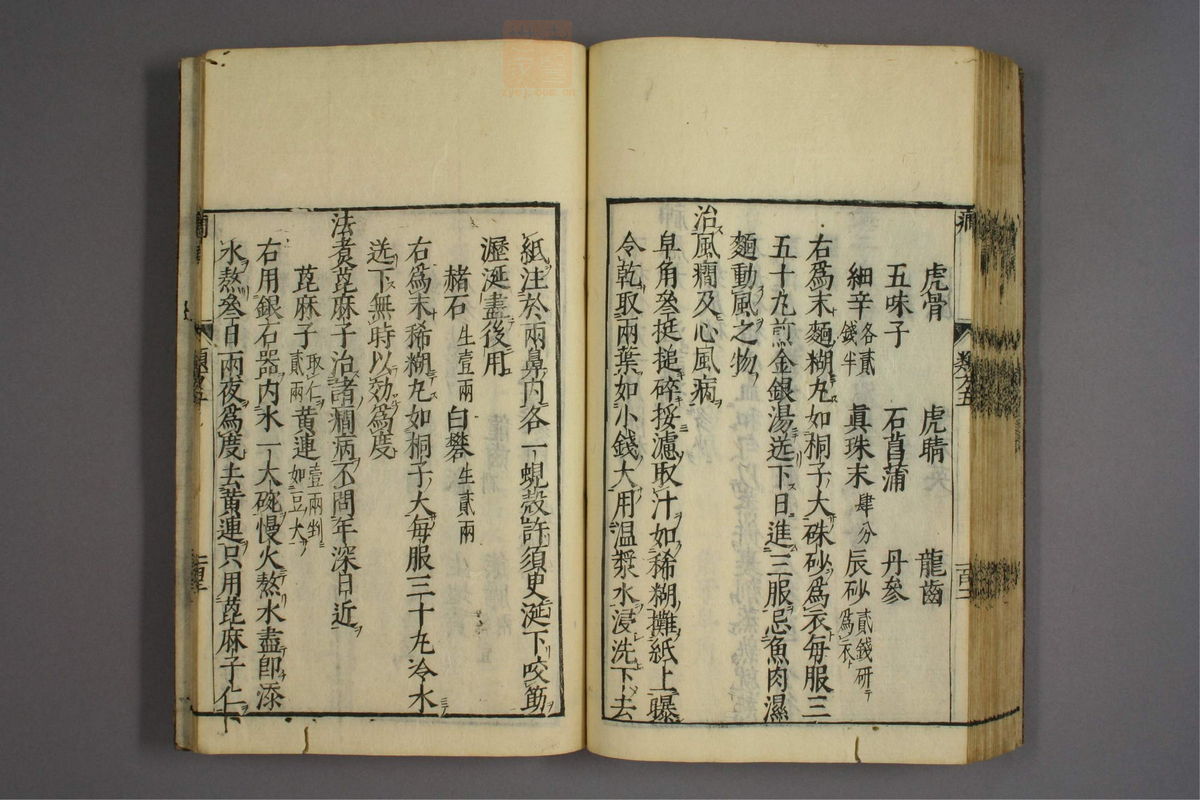 虎骨 虎睛 龍齒
五味子 石菖蒲 丹參
細辛各貳錢半 眞珠末肆分 辰砂貳錢研爲衣
右爲末麵糊丸如桐子大硃砂爲衣每服三
五十丸煎金銀湯送下日進三服忌魚肉濕
麵動風之物
治風癇及心風病
皁角叄挺搥碎挼濾取汁如稀糊攤紙上曝
令乾取兩葉如小錢大用温漿水浸洗下去
紙注於兩鼻內各一蜆殼許須臾涎下咬筯
瀝涎盡後用
赭石生壹兩 白礬生貳兩
右爲末稀糊丸如桐子大每服三十丸冷水
送下無時以効爲度
法煮萞麻子治諸癇病不問年深日近
萞麻子取仁貳兩 黃連壹兩剉如豆大
右用銀石器內水一大碗慢火熬水盡即添
水熬叄日兩夜爲度去黃連只用萞麻子仁不